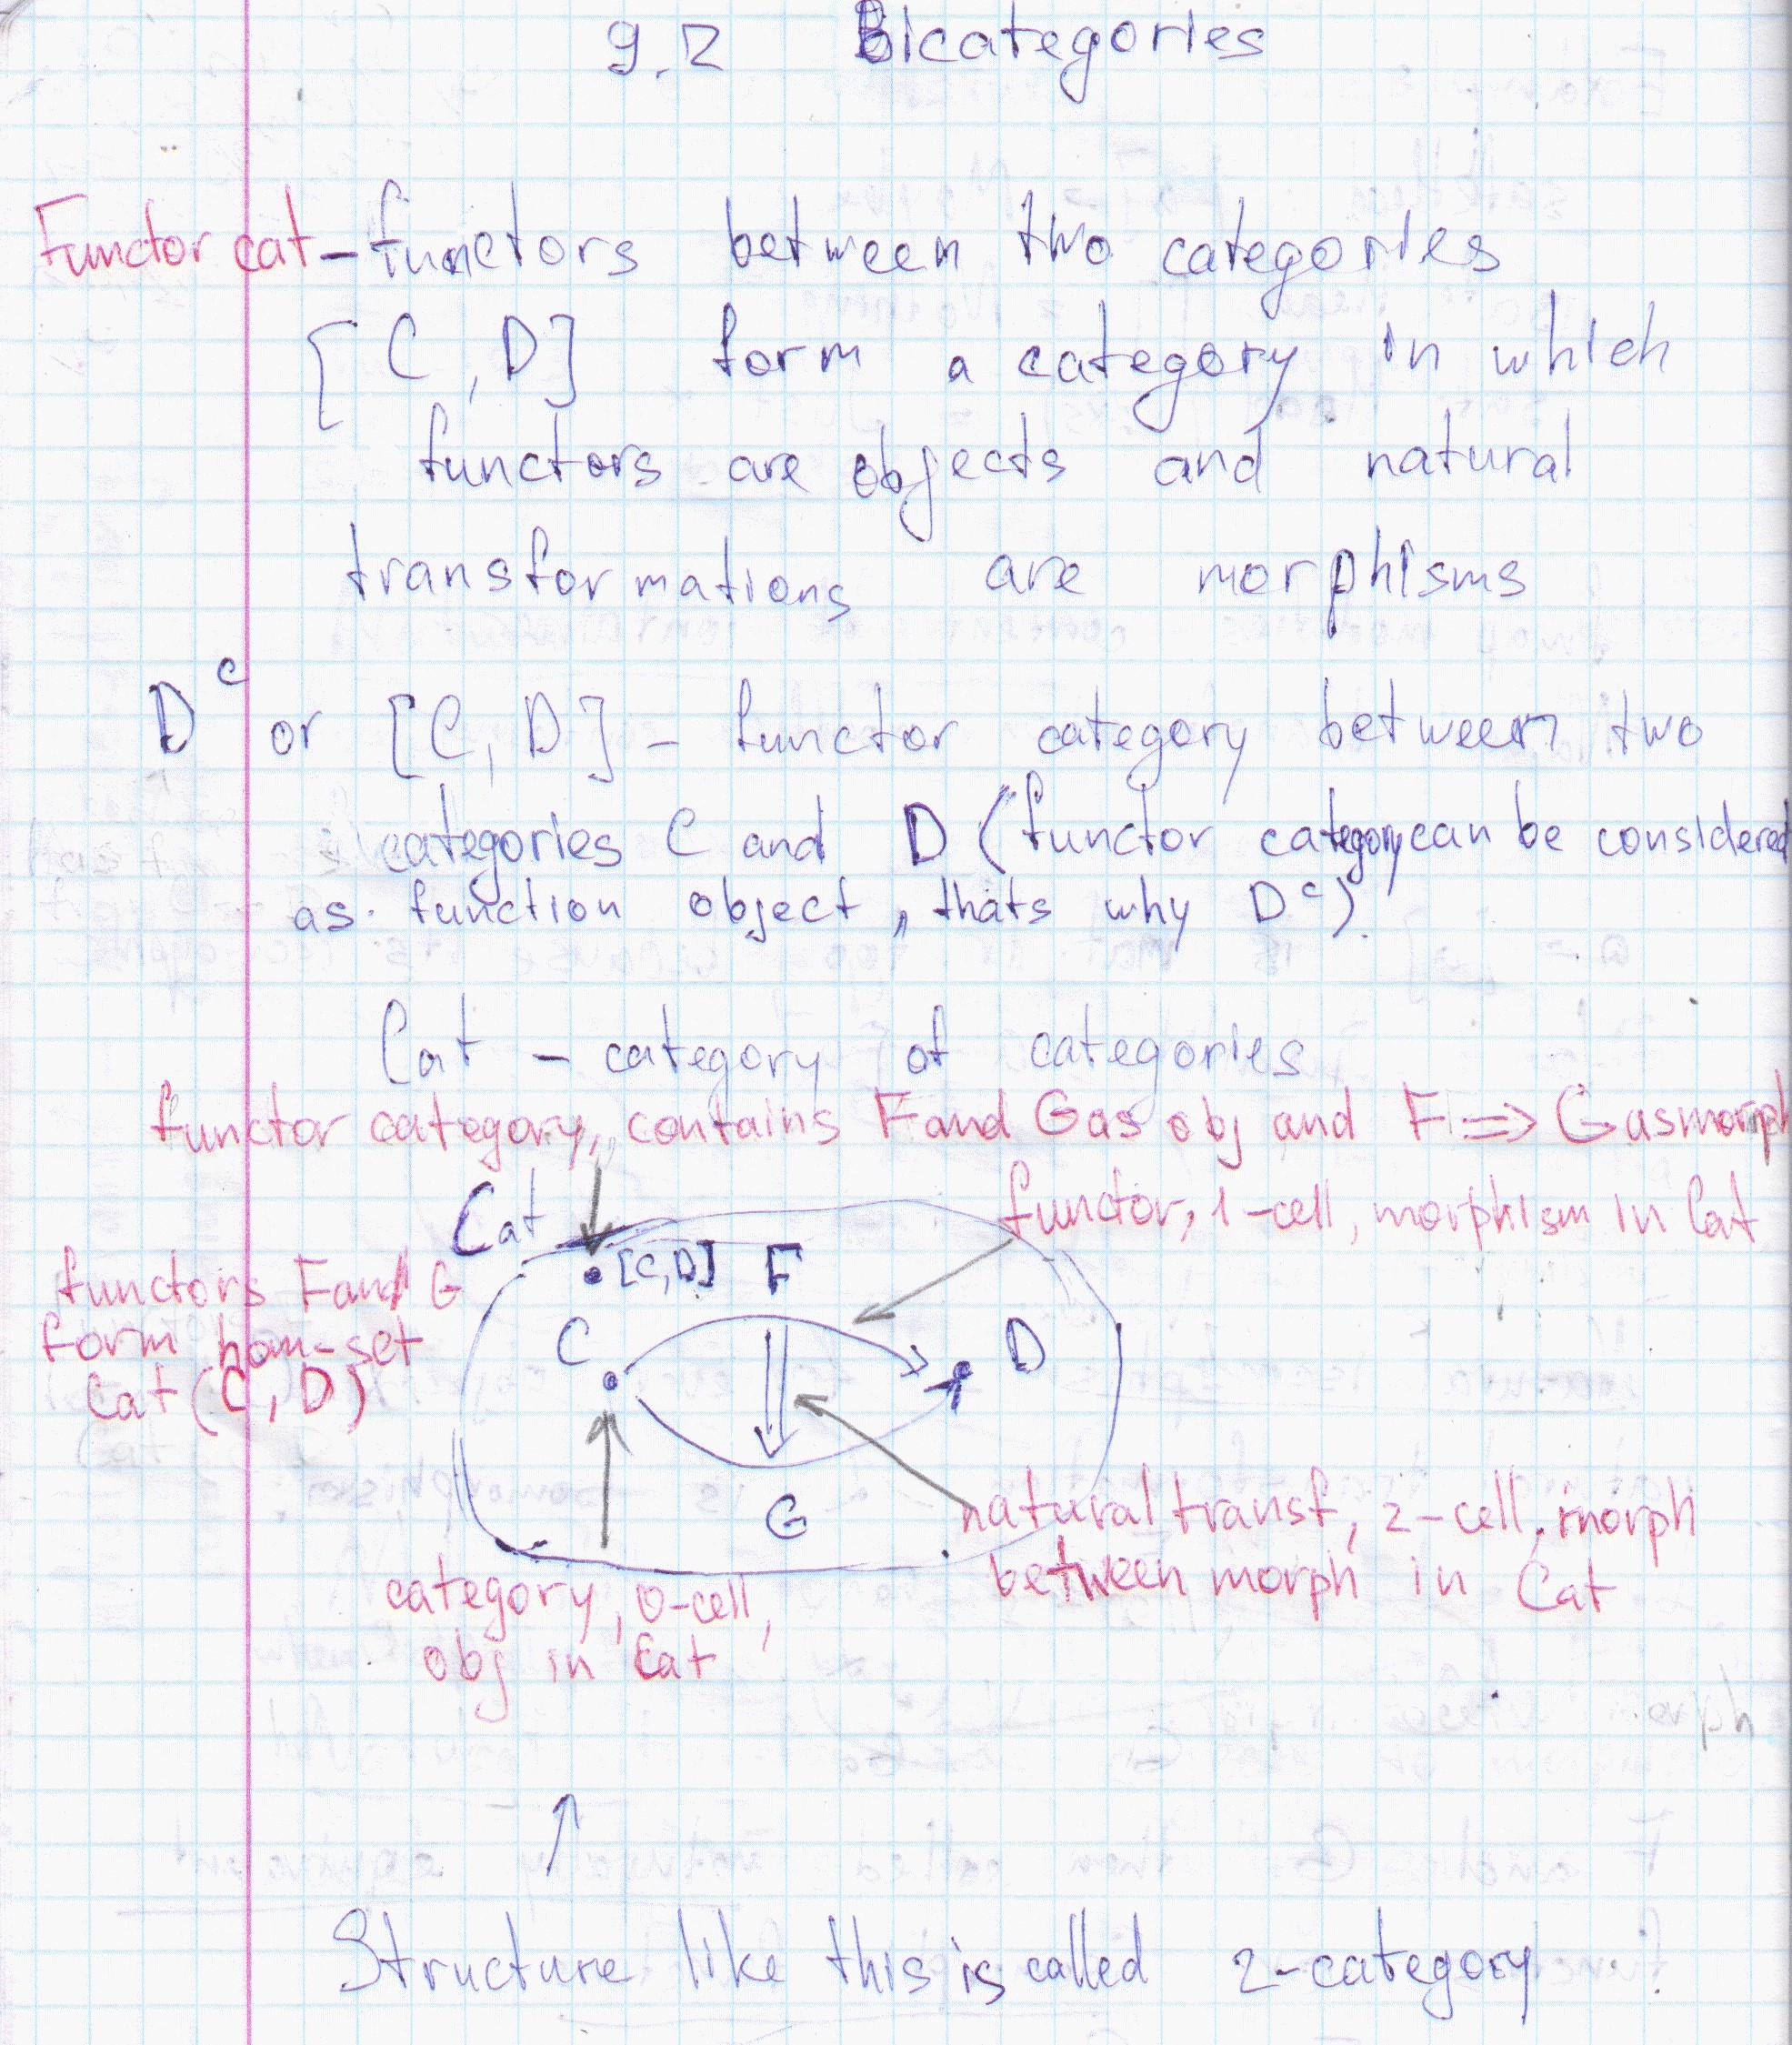 9.2 Bicategories
Functor cat - functors between two categories
[C, D] form a category in which
functors are objects and natural
transformations are morphisms
D^C or [C, D] - functor category between two
categories C and D (functor category can be considered
as function object, thats why D^C).
Cat - category of categories
functor category, contains F and G as obj and F => G as morph
functor, 1-cell, morphism in Cat
Cat
[C,D] F
functors F and G
form hom-set
Cat(C, D)
C
D
G
natural transf, 2-cell, morph
between morph in Cat
category, 0-cell,
obj in Cat
Structure like this is called 2-category.